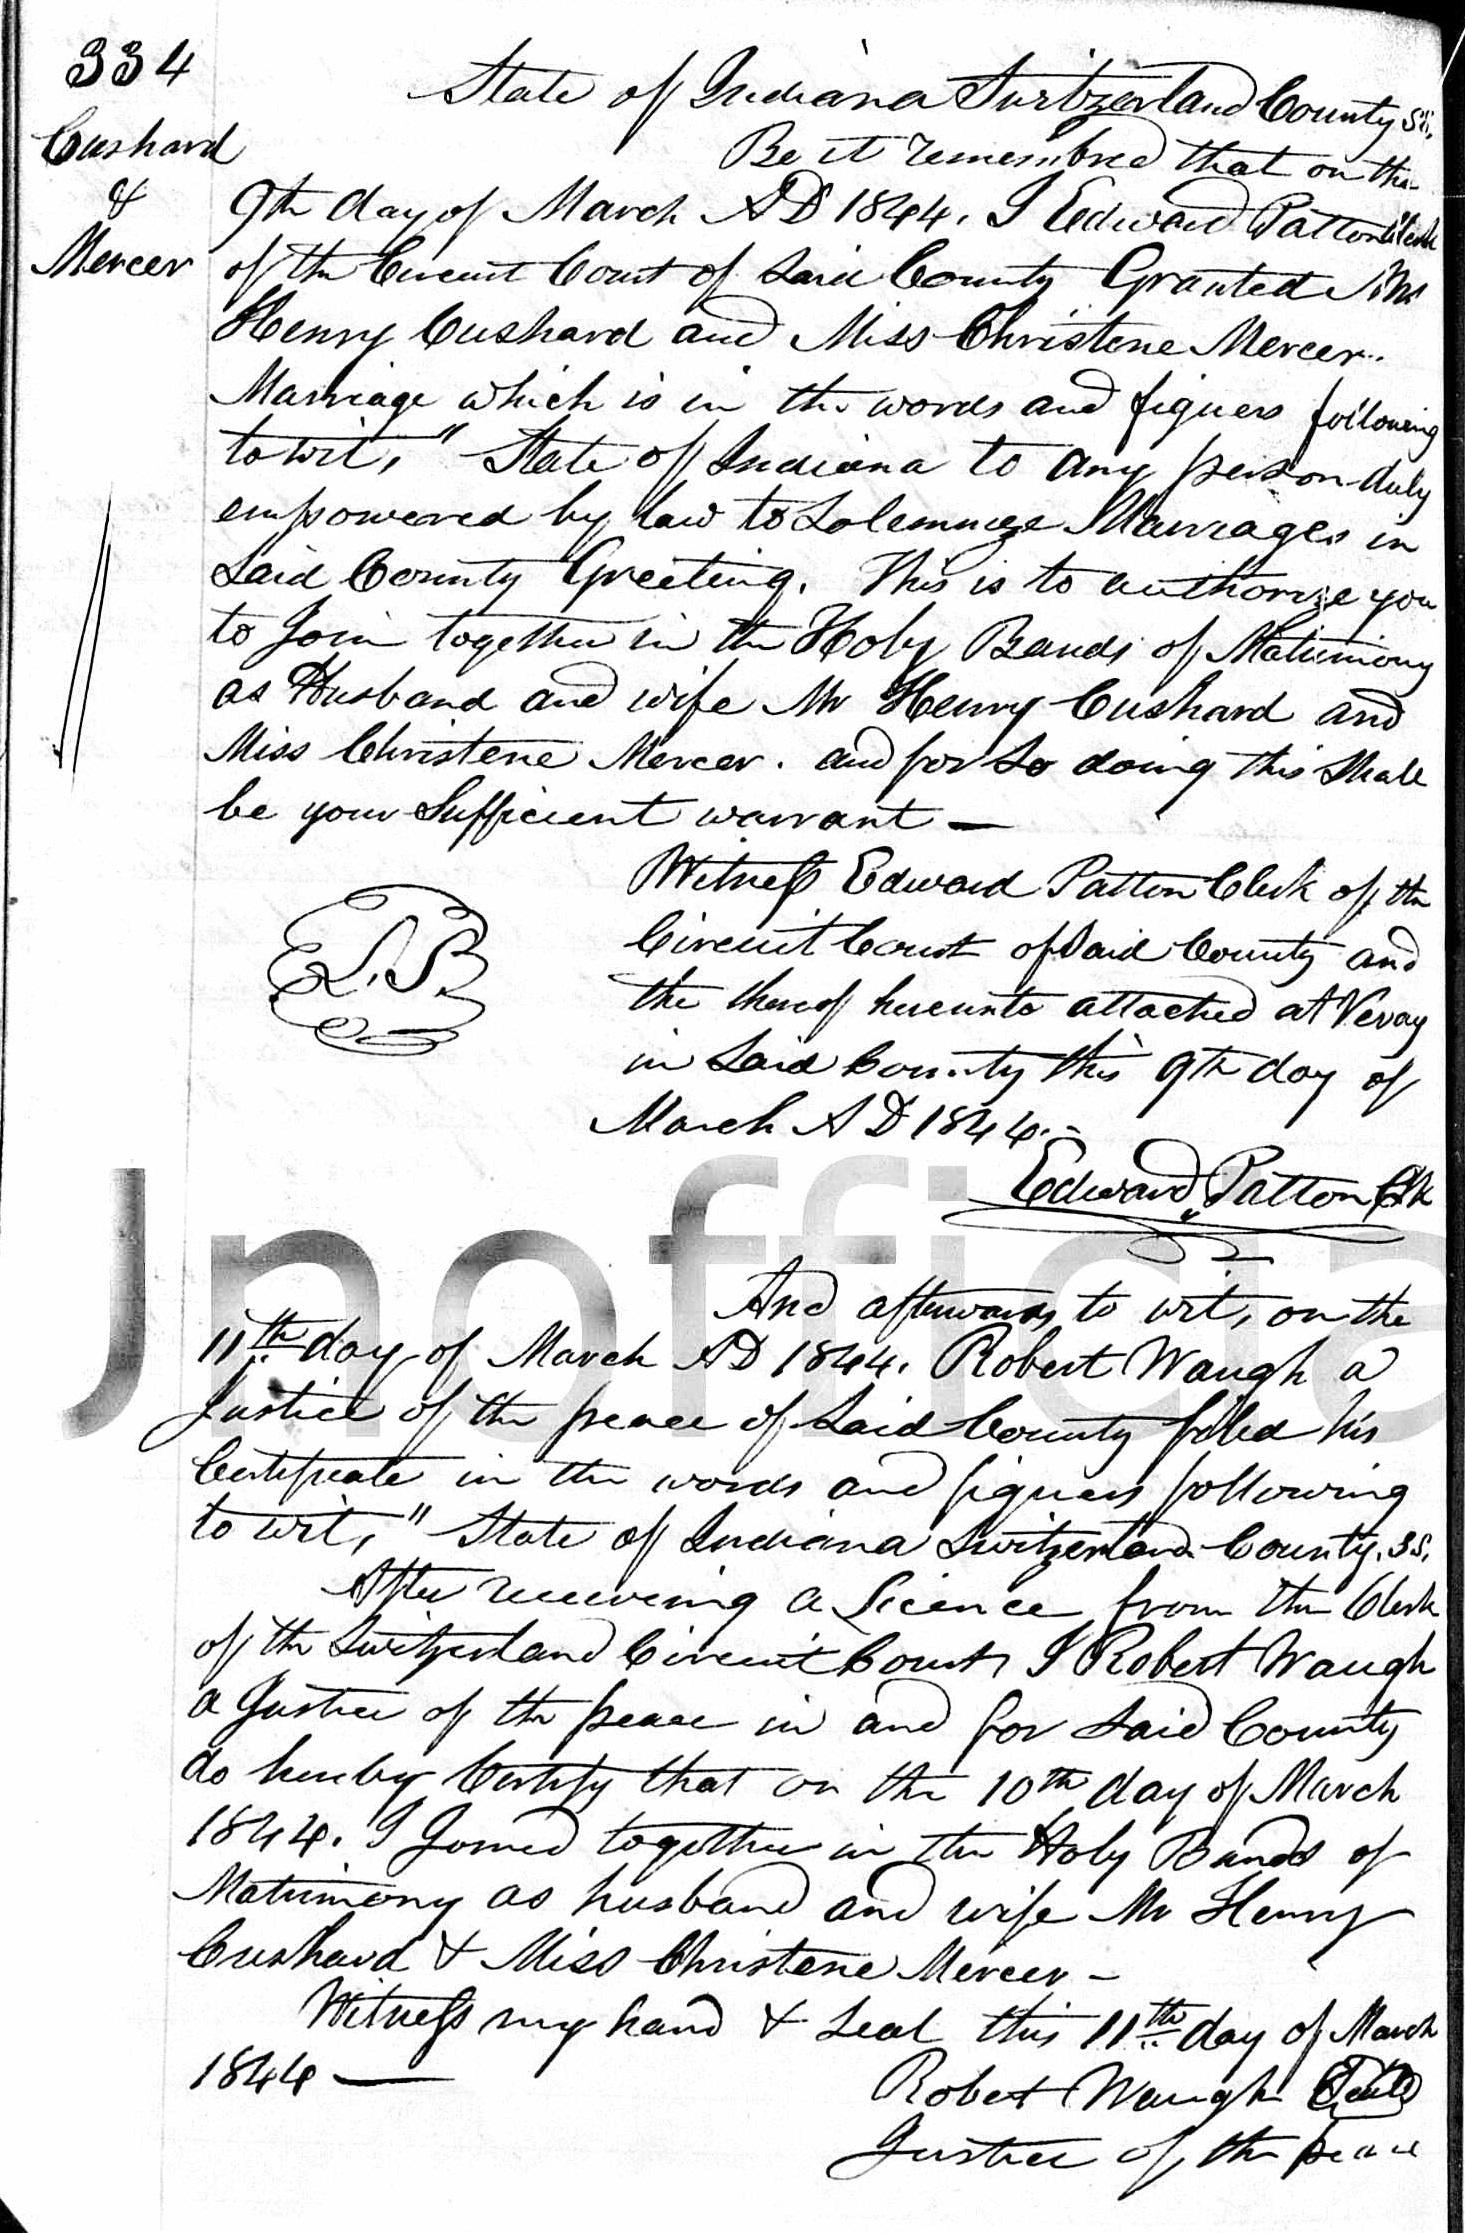 334
State of Indiana Switzerland County ss.
Cushard
&
Mercer
Be it remembered that on the
9th day of March AD 1844. I Edward Patton Clerk
of the Circuit Court of Said County Granted Mr
Henry Cushard and Miss Christene Mercer.
Marriage which is in the words and figuers following
to wit, " State of Indiana to any person duly
empowered by law to Solemnize Marriages in
Said County Greeting. This is to authorize you
to Join together in the Holy Bands of Matrimony
as Husband and wife Mr Henry Cushard and
Miss Christene Mercer. and for So doing this Shall
be your Sufficient warrant —
L.S.
Witness Edward Patton Clerk of the
Circuit Court of Said County and
the thereof hereunto attached at Vevay
in Said County this 9th day of
March AD 1844.-
Edward Patton Clk
And afterwards to wit, on the
11th day of March AD 1844. Robert Waugh a
Justice of the peace of Said County filed his
Certificate in the words and figuers following
to wit, " State of Indiana Switzerland County. ss.
After receiving a Licence from the Clerk
of the Switzerland Circuit Court, I Robert Waugh
a Justice of the peace in and for Said County
do hereby Certify that on the 10th day of March
1844. I Joined together in the Holy Bands of
Matrimony as husband and wife Mr Henry
Cushard & Miss Christene Mercer -
Witness my hand & Seal this 11th day of March
1844 —
Robert Waugh Seal
Justice of the peace
Unofficia